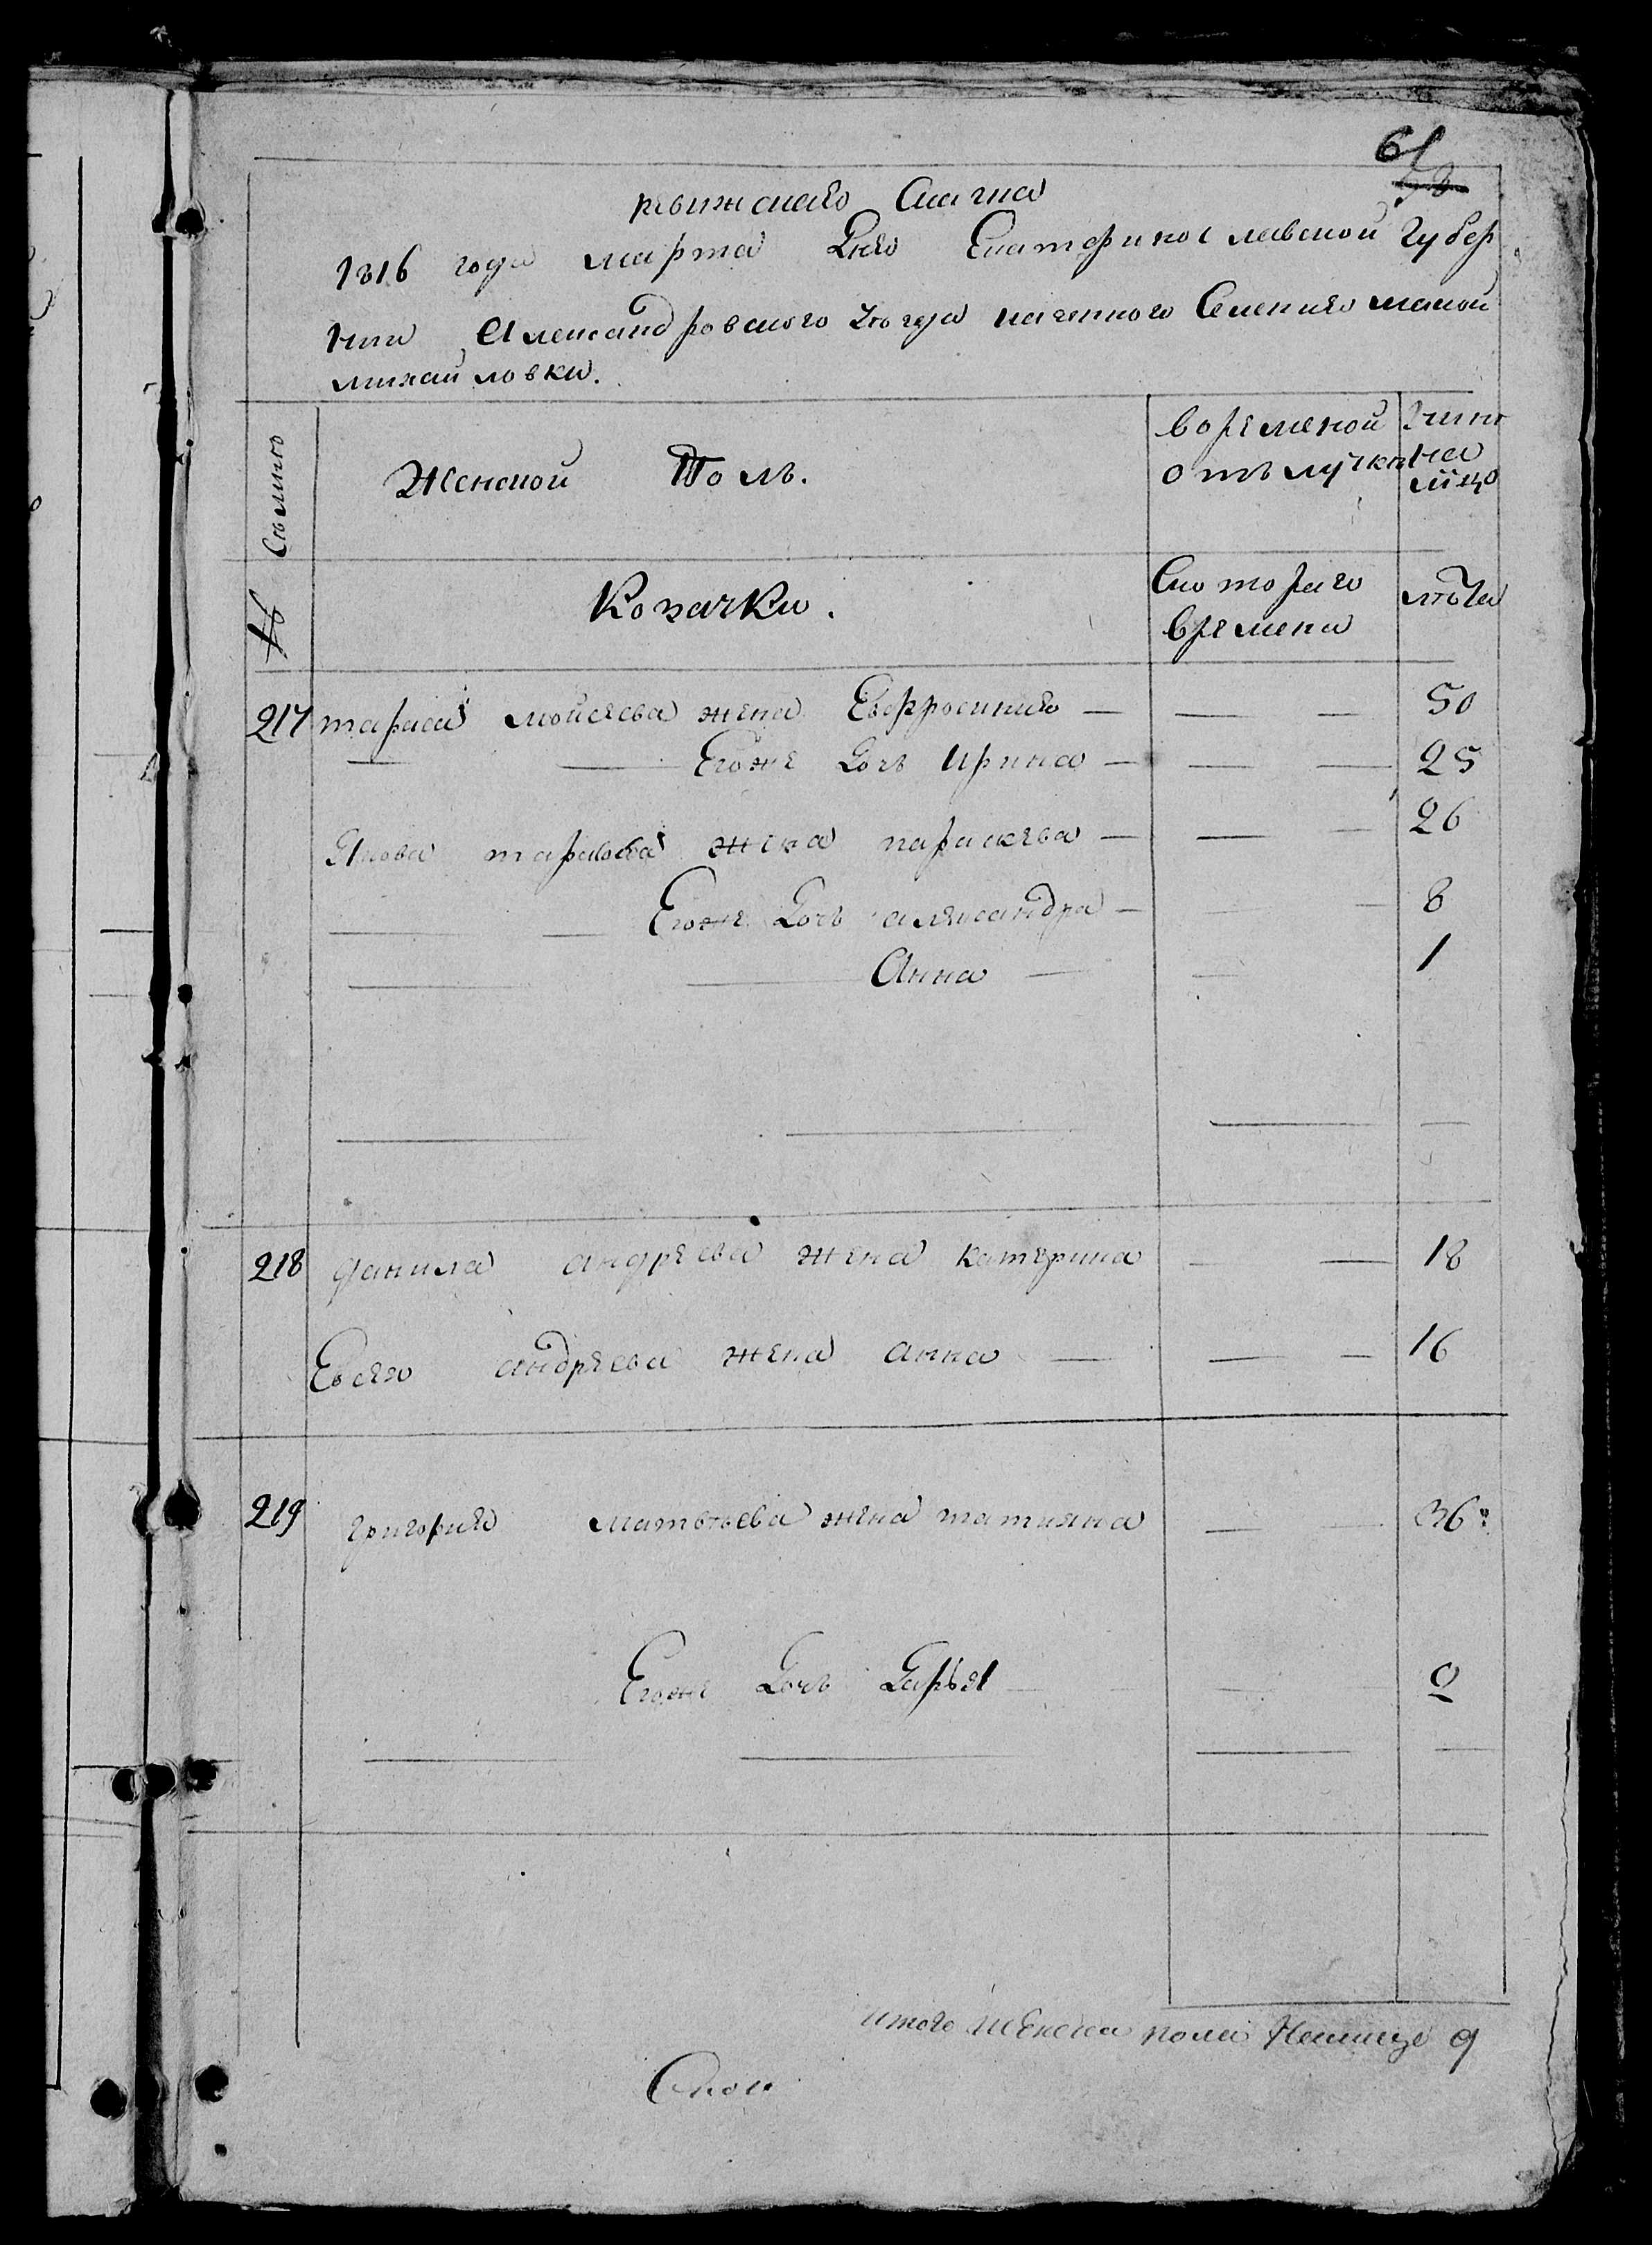 61
ревижская Скаска
1816 года марта Дня Екатеринославской Губер
нии Александровского уезда казенного Селения малой
михайловки.
Семью
Женской Полъ.
Во временой отълучки
Ныне на лицо
№
Козачки.
С которого времени
лѣта
217 тараса мойсеева жена Евфросиния — — — 50
Егоже Дочь Ирина — — — 25
Якова тарасова жена параскева — — — 26
Егоже Дочь александра — — — 8
Анна — — 1
218 данила андреева жена катерина — — 18
Евсея андреева жена анна — — — 16
219 григория матвѣева жена татияна — — 36
Егоже Дочь Дарья — — 9
итого женска пола Налице 9